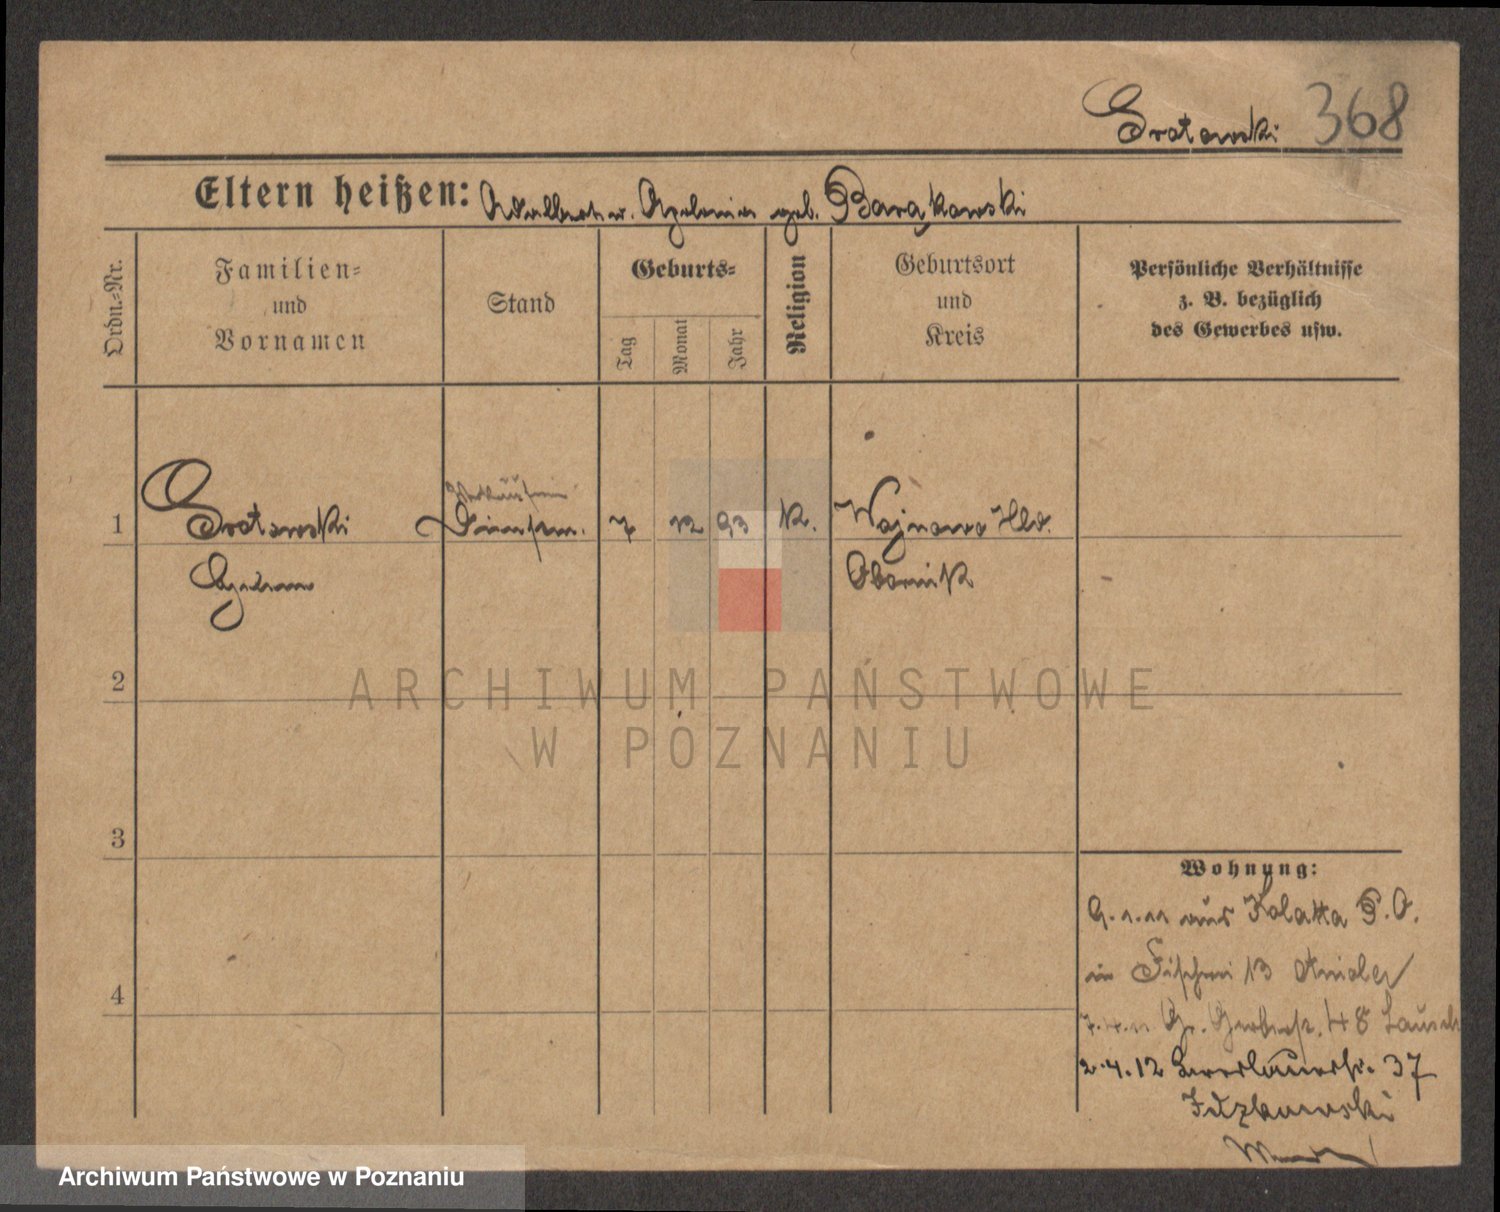 Grotowski 368
Eltern heißen: Adalbert u. Apolonia geb. Barąkowski
Ordn.-Nr.
Familien-
und
Vornamen
Stand
Geburts-
Tag
Monat
Jahr
Religion
Geburtsort
und
Kreis
Persönliche Verhältnisse
z. B. bezüglich
des Gewerbes usw.
Verkäuferin
1 Grotowski 7 12 93 K. Wojnowo Hld.
Obornik
2
3
4
Wohnung:
9.1.11 aus Kolatka P. O.
in Fischerei 13
Gr. Gerberstr. 48
2.4.12 Breslauerstr. 37
ARCHIWUM PAŃSTWOWE
W POZNANIU
Archiwum Państwowe w Poznaniu